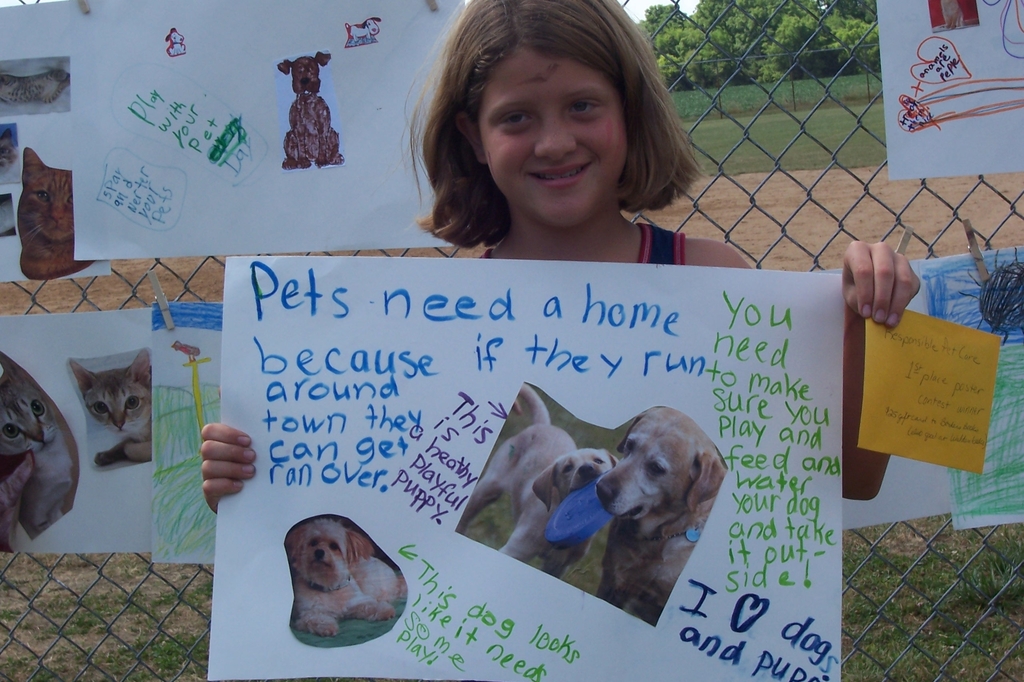 Play
with
your
pet
animals
are
people
Pets need a home
because if they run
around
town they
can get
ran over.
This
is
a healthy
playful
puppy.
You
need
to make
sure you
play and
feed and
water
your dog
and take
it out-
side!
This dog looks
like it needs
some
play!
I dogs
and
Responsible Pet Care
1st place poster
contest winner